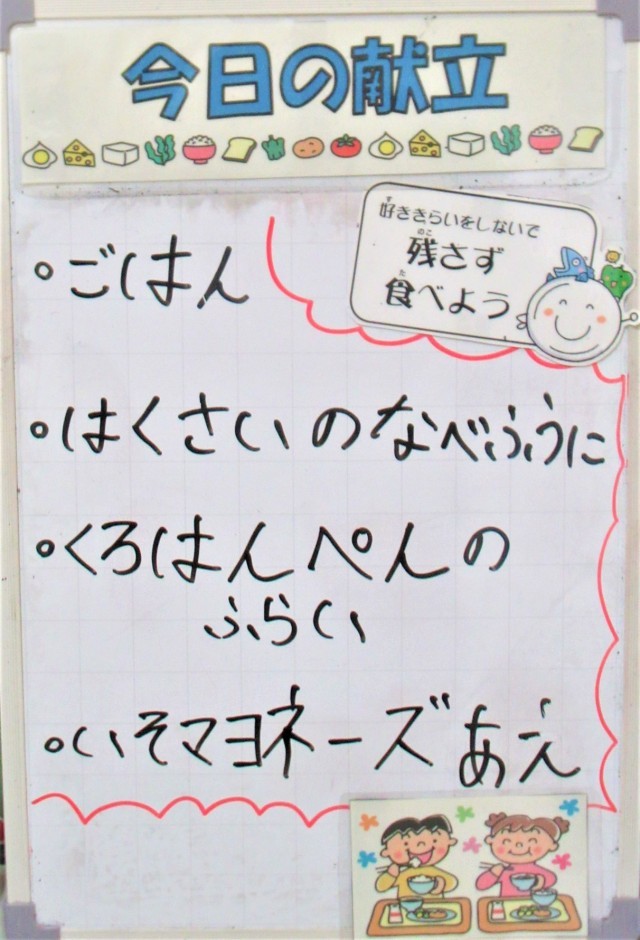 今日の献立
好ききらいをしないで
残さず
食べよう
・ごはん
・はくさいのなべふうに
・くろはんぺんの
ふらい
・いそマヨネーズあえ